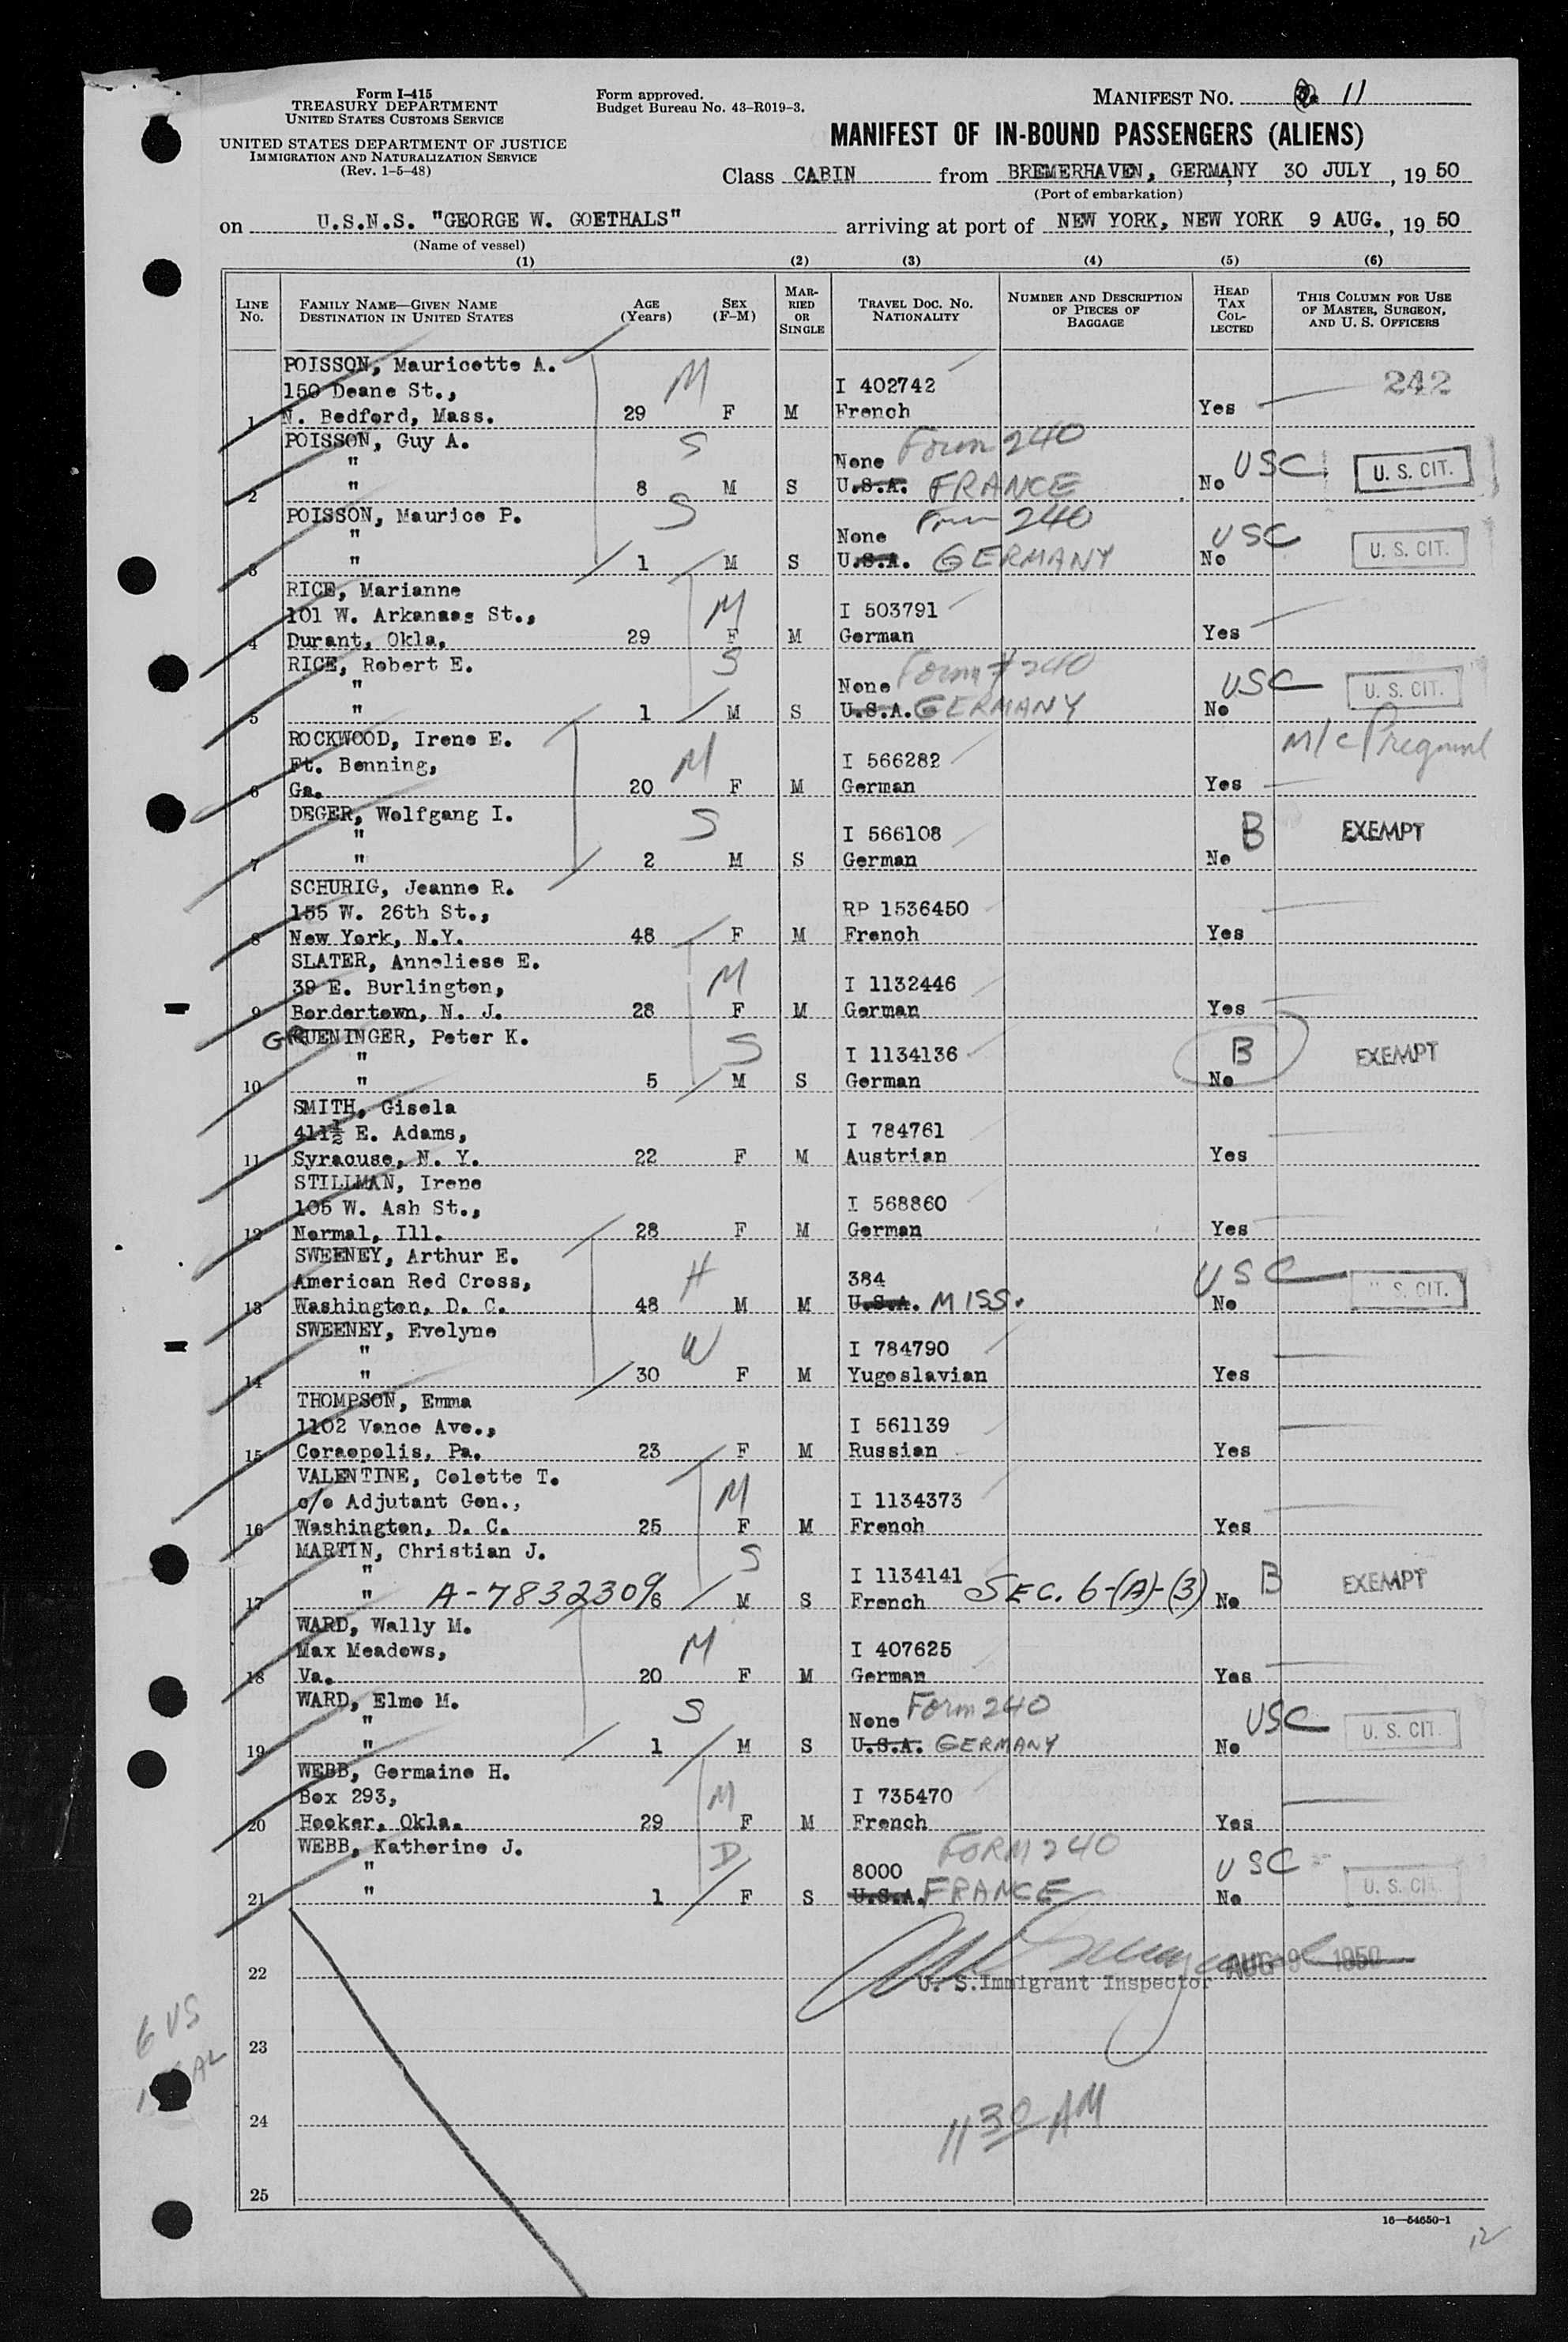 Form I-415
TREASURY DEPARTMENT
UNITED STATES CUSTOMS SERVICE
UNITED STATES DEPARTMENT OF JUSTICE
IMMIGRATION AND NATURALIZATION SERVICE
(Rev. 1-5-48)
Form approved.
Budget Bureau No. 43-R019-3.
MANIFEST NO. 11
MANIFEST OF IN-BOUND PASSENGERS (ALIENS)
Class CABIN from BREMERHAVEN, GERMANY, 30 JULY, 1950
(Port of embarkation)
on U.S.N.S. "GEORGE W. GOETHALS" arriving at port of NEW YORK, NEW YORK 9 AUG., 1950
(Name of vessel)
(1) (2) (3) (4) (5) (6)
LINE NO. FAMILY NAME—GIVEN NAME DESTINATION IN UNITED STATES AGE (Years) SEX (F-M) MARRIED OR SINGLE TRAVEL DOC. NO. NATIONALITY NUMBER AND DESCRIPTION OF PIECES OF BAGGAGE HEAD TAX COLLECTED THIS COLUMN FOR USE OF MASTER, SURGEON, AND U. S. OFFICERS
POISSON, Mauricette A. M
150 Deane St., I 402742 242
1 N. Bedford, Mass. 29 F M French Yes
POISSON, Guy A. S Form 240
" None USC U. S. CIT.
2 " 8 M S U.S.A. FRANCE No
POISSON, Maurice P. S Form 240
" None USC U. S. CIT.
3 " 1 M S U.S.A. GERMANY No
RICE, Marianne M
101 W. Arkansas St., I 503791
4 Durant, Okla. 29 F M German Yes
RICE, Robert E. S Form # 240
" None USC U. S. CIT.
5 " 1 M S U.S.A. GERMANY No
ROCKWOOD, Irene E. M M/c Pregnant
Ft. Benning, I 566282
6 Ga. 20 F M German Yes
DEGER, Wolfgang I. S
" I 566108 B EXEMPT
7 " 2 M S German No
SCHURIG, Jeanne R.
155 W. 26th St., RP 1536450
8 New York, N.Y. 48 F M French Yes
SLATER, Anneliese E. M
39 E. Burlington, I 1132446
9 Bordertown, N. J. 28 F M German Yes
GRUENINGER, Peter K. S
" I 1134136 B EXEMPT
10 " 5 M S German No
SMITH, Gisela
411½ E. Adams, I 784761
11 Syracuse, N. Y. 22 F M Austrian Yes
STILLMAN, Irene
105 W. Ash St., I 568860
12 Normal, Ill. 28 F M German Yes
SWEENEY, Arthur E. H
American Red Cross, 384 USC U. S. CIT.
13 Washington, D. C. 48 M M U.S.A. MISS. No
SWEENEY, Evelyne W
" I 784790
14 " 30 F M Yugoslavian Yes
THOMPSON, Emma
1102 Vance Ave., I 561139
15 Coraopolis, Pa. 23 F M Russian Yes
VALENTINE, Colette T. M
c/o Adjutant Gen., I 1134373
16 Washington, D. C. 25 F M French Yes
MARTIN, Christian J. S
" I 1134141 B EXEMPT
17 " A-7832309 6 M S French SEC. 6-(A)-(3) No
WARD, Wally M. M
Max Meadows, I 407625
18 Va. 20 F M German Yes
WARD, Elmo M. S Form 240
" None USC U. S. CIT.
19 " 1 M S U.S.A. GERMANY No
WEBB, Germaine H. M
Box 293, I 735470
20 Hooker, Okla. 29 F M French Yes
WEBB, Katherine J. D FORM 240
" 8000 USC U. S. CIT.
21 " 1 F S U.S.A. FRANCE No
22 U. S. Immigrant Inspector AUG 9 1950
6 US
23
24 11 30 AM
25
16—54650-1
12